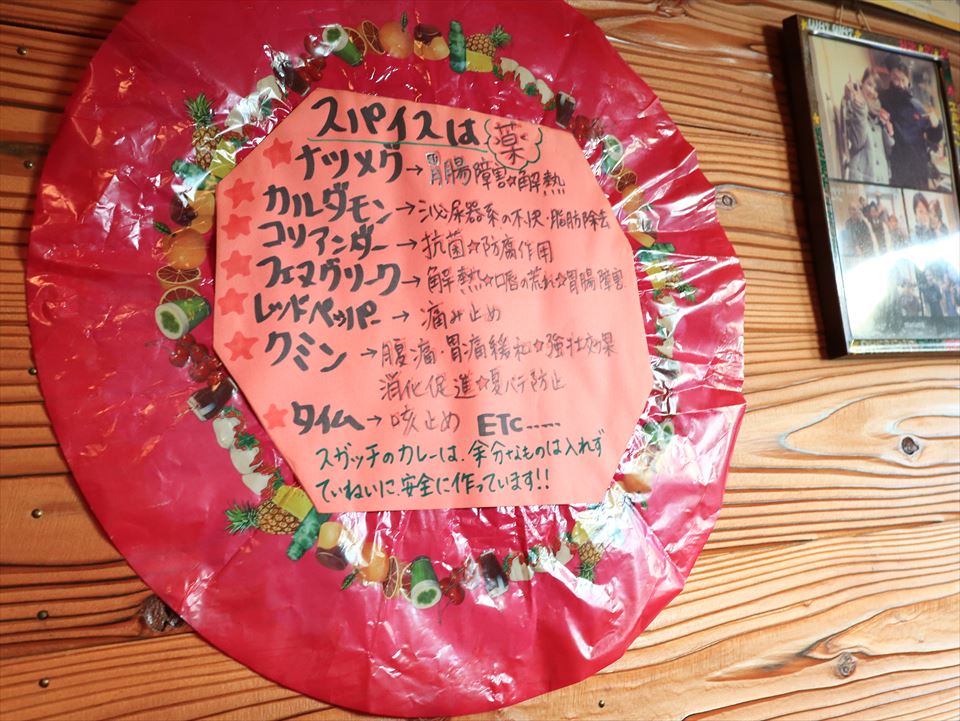 スパイスは薬
★ナツメグ→胃腸障害☆解熱
★カルダモン→泌尿器系の不快・脂肪除去
★コリアンダー→抗菌☆防腐作用
★フェヌグリーク→解熱☆口唇の荒れ☆胃腸障害
★レッドペッパー→痛み止め
★クミン→腹痛・胃痛緩和☆強壮効果
消化促進☆夏バテ防止
★タイム→咳止め ETC.....
スガッチのカレーは、余分なものは入れず
ていねいに、安全に作っています!!